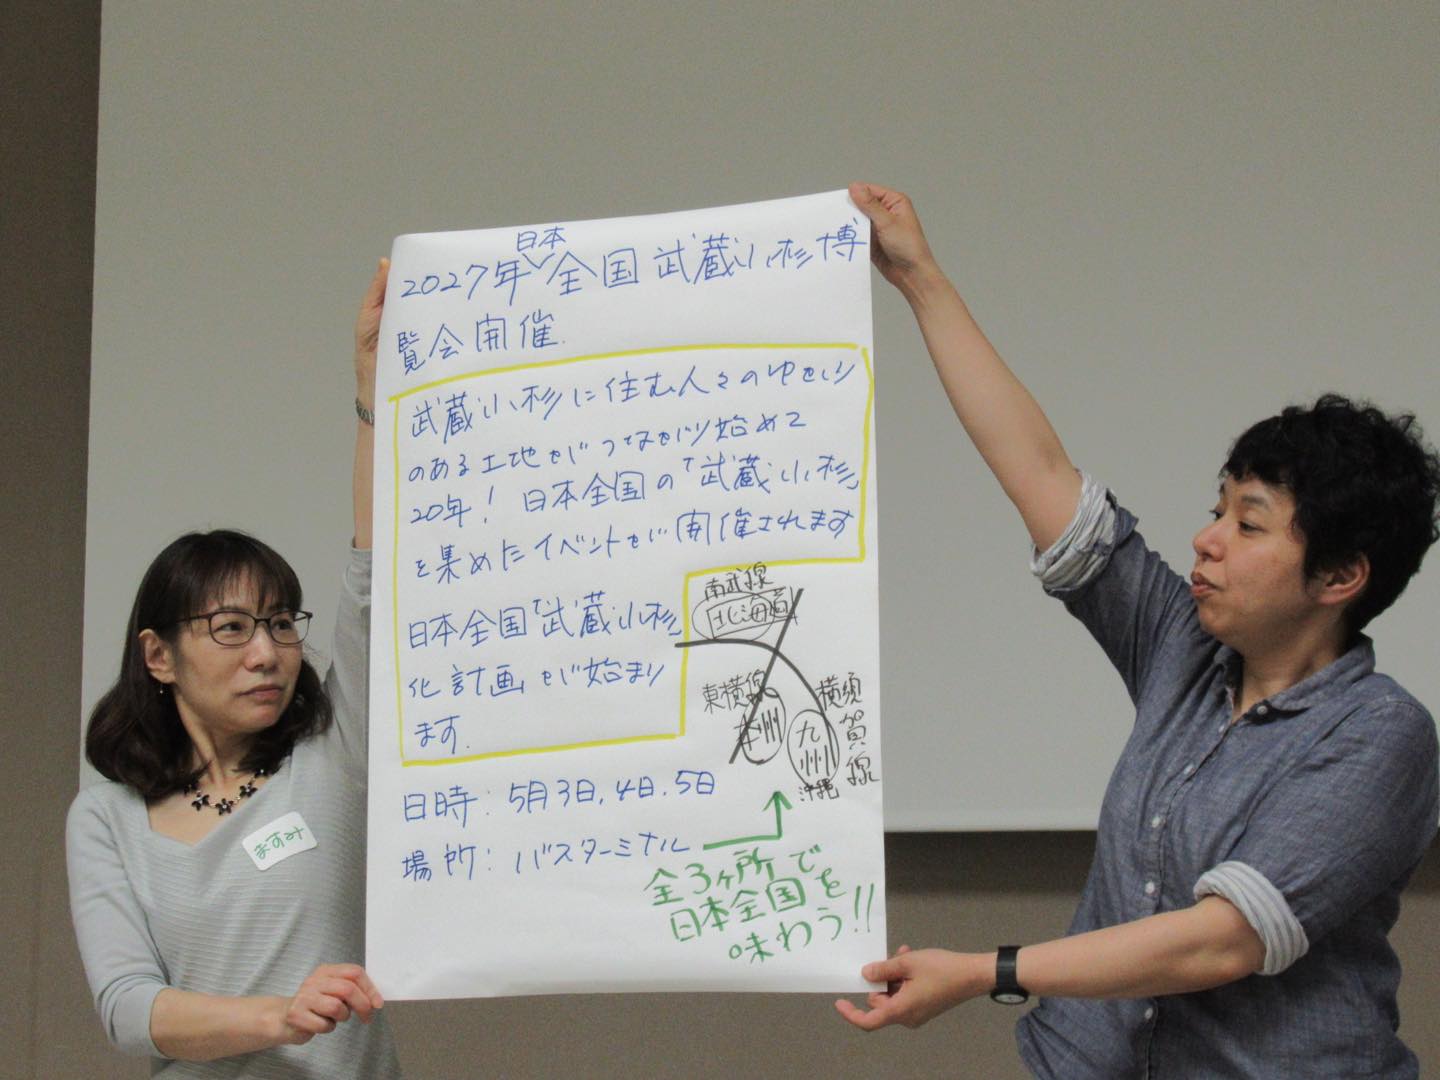 2027年日本全国武蔵小杉博
覧会開催.
武蔵小杉に住む人々のゆかり
のある土地がつながり始めて
20年! 日本全国の「武蔵小杉」
を集めたイベントが開催されます
日本全国「武蔵小杉」
化計画が始まり
ます.
南武線
北海道
東横線
本州
横須賀線
九州
沖縄
日時: 5月3日, 4日, 5日
場所: バスターミナル
全3ヶ所で
日本全国を
味わう!!
ますみ